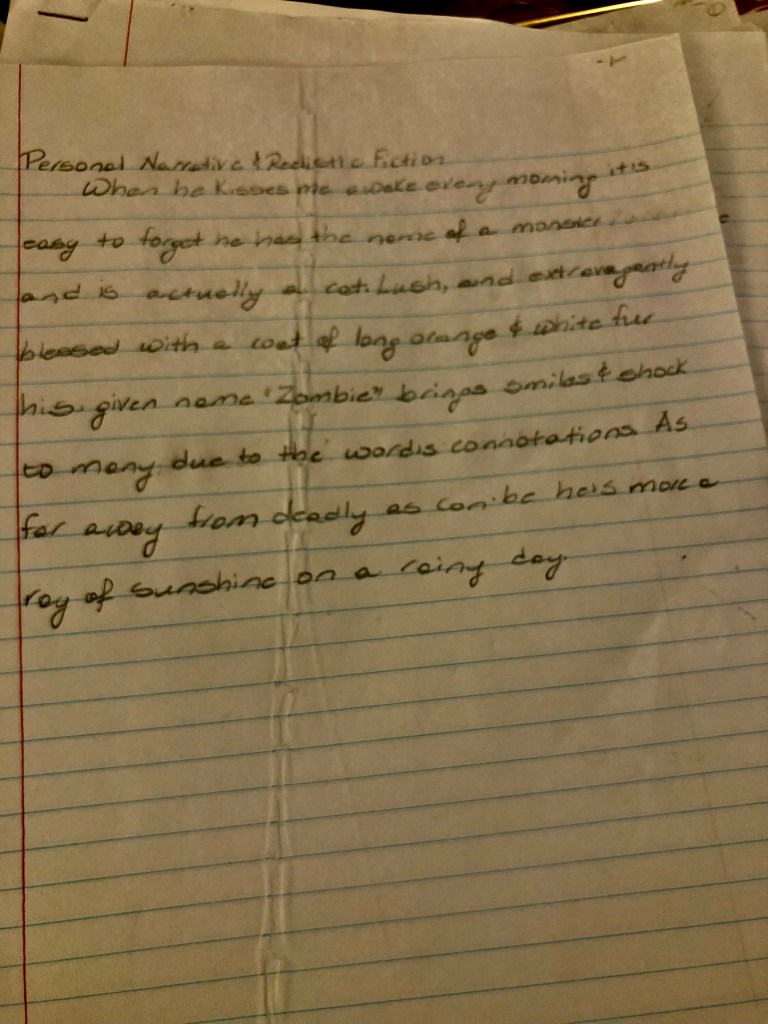 Personal Narrative & Realistic Fiction
When he kisses me awake every morning it is
easy to forget he has the name of a monster
and is actually a cat. Lush, and extravagently
blessed with a coat of long orange & white fur
his given name "Zombie" brings smiles & shock
to many due to the word's connotations As
far away from deadly as can be he is more a
ray of sunshine on a rainy day.